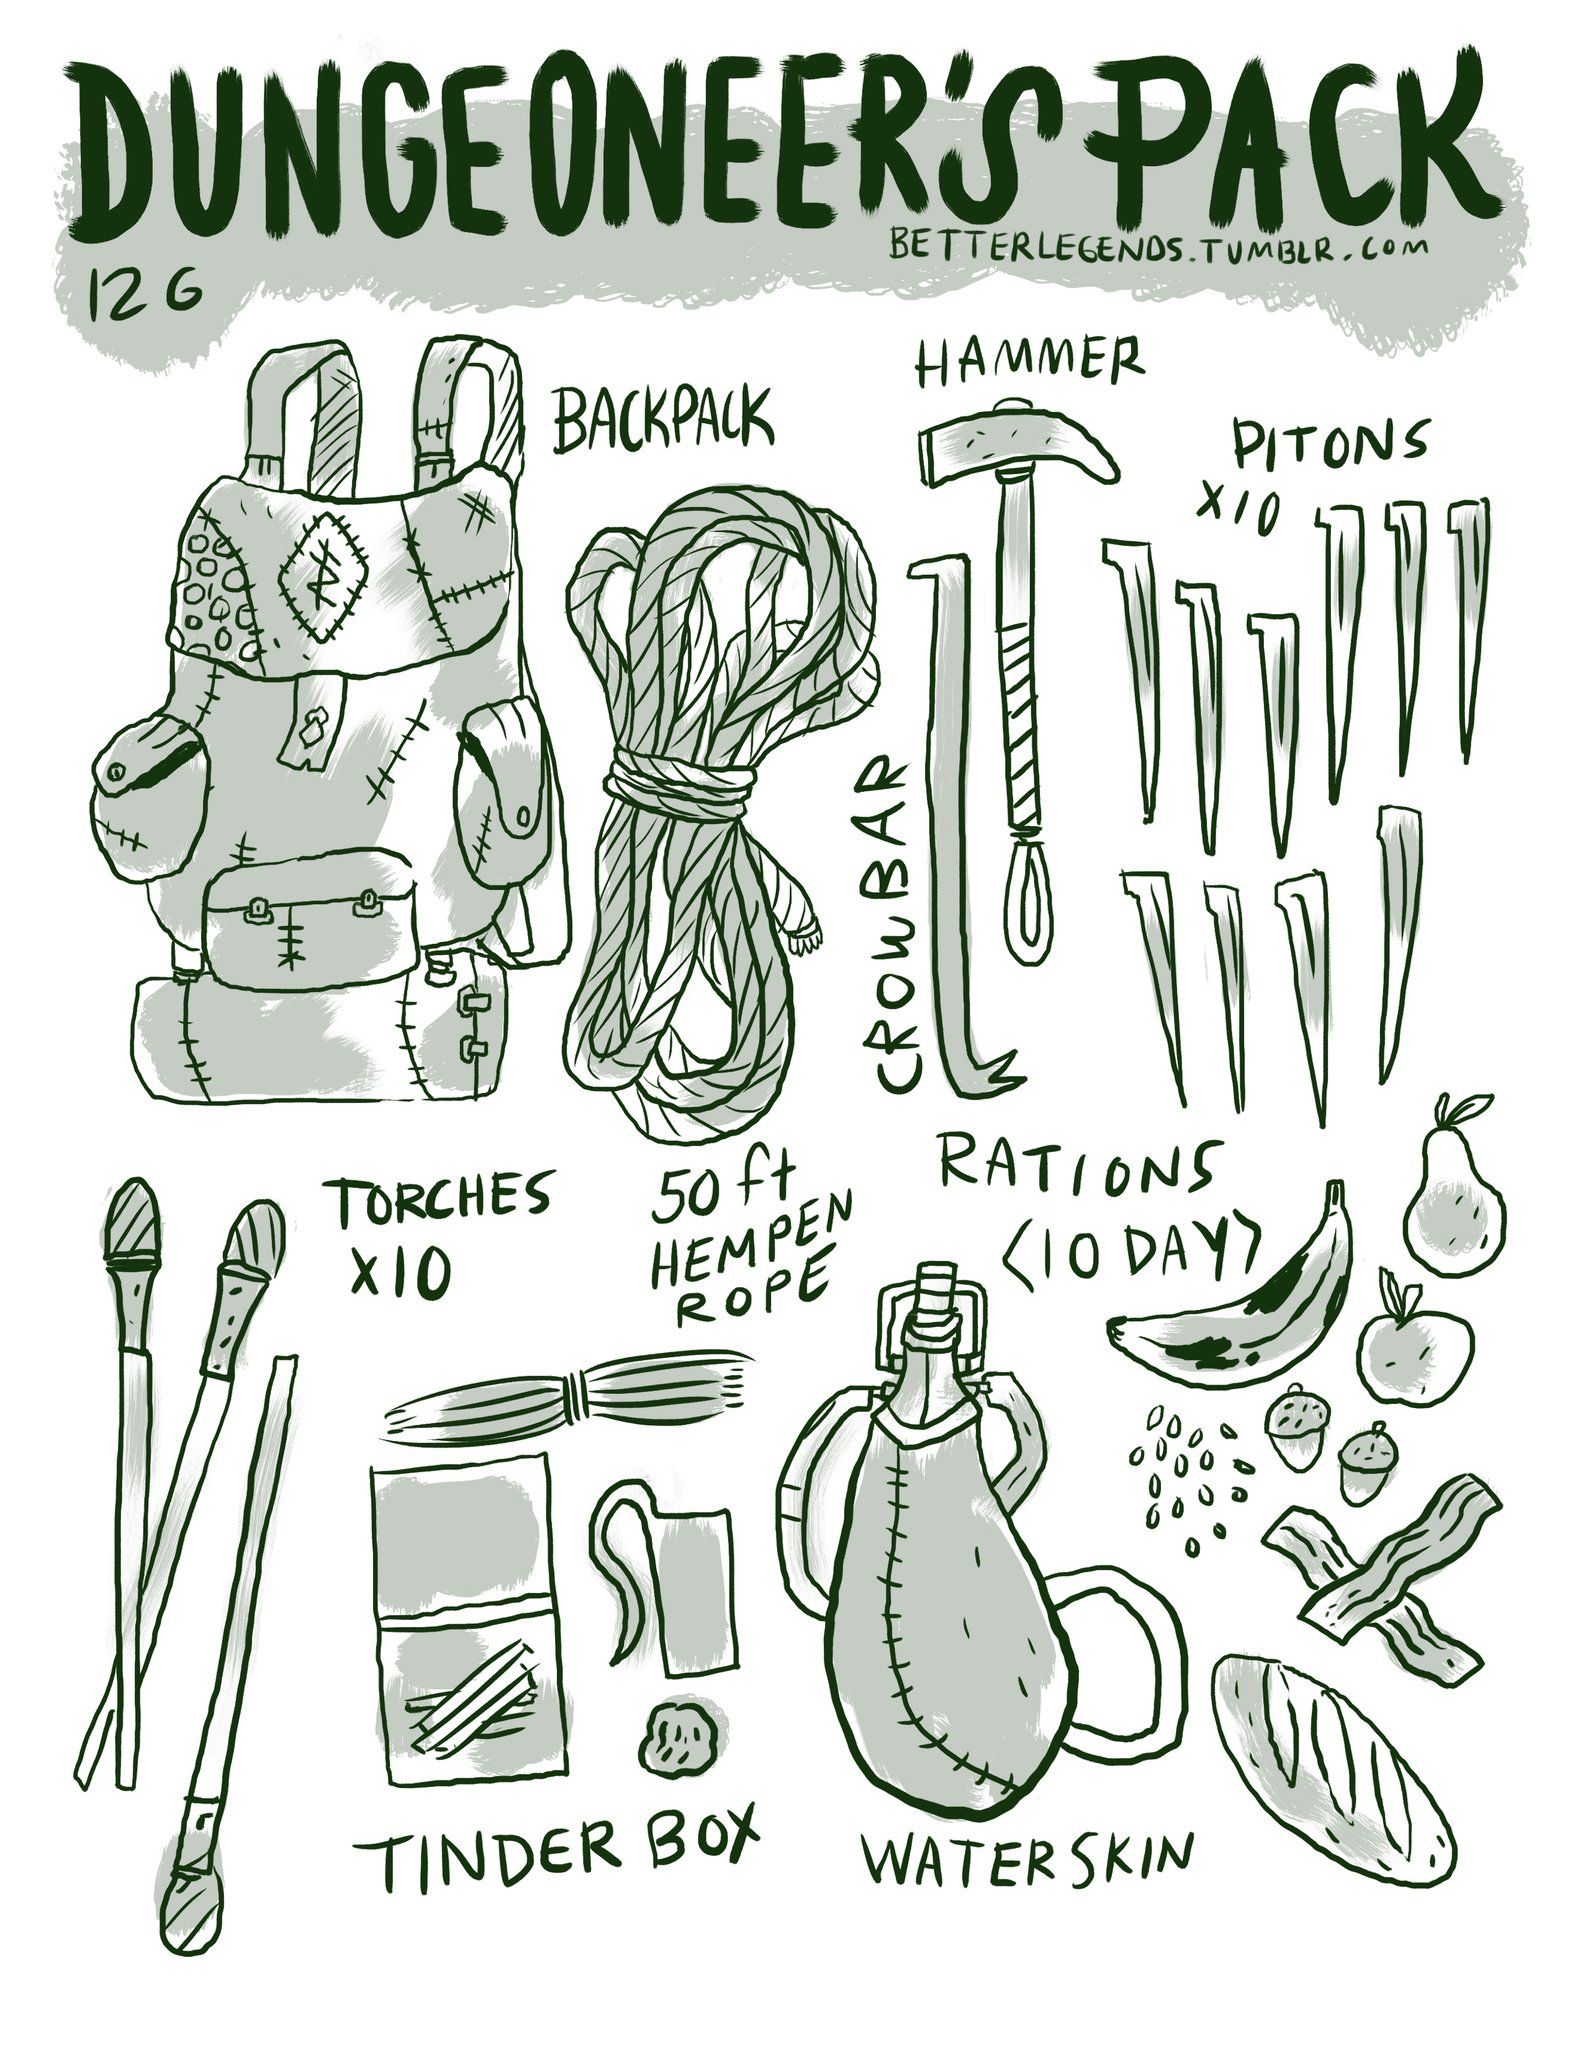 DUNGEONEER'S PACK
BETTERLEGENDS.TUMBLR.COM
12 G
BACKPACK
HAMMER
PITONS
X10
CROWBAR
TORCHES
X10
50 ft
HEMPEN
ROPE
RATIONS
(10 DAY)
TINDER BOX
WATERSKIN